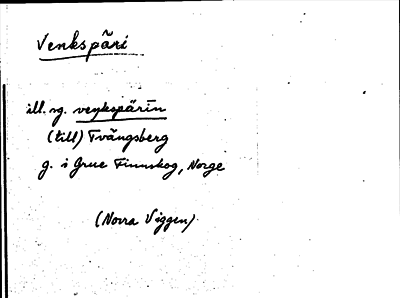 Venkspäri
ill. sg. venkspärin
(till) Tvängsberg
g. i Grue Finnskog, Norge
(Norra Viggen)